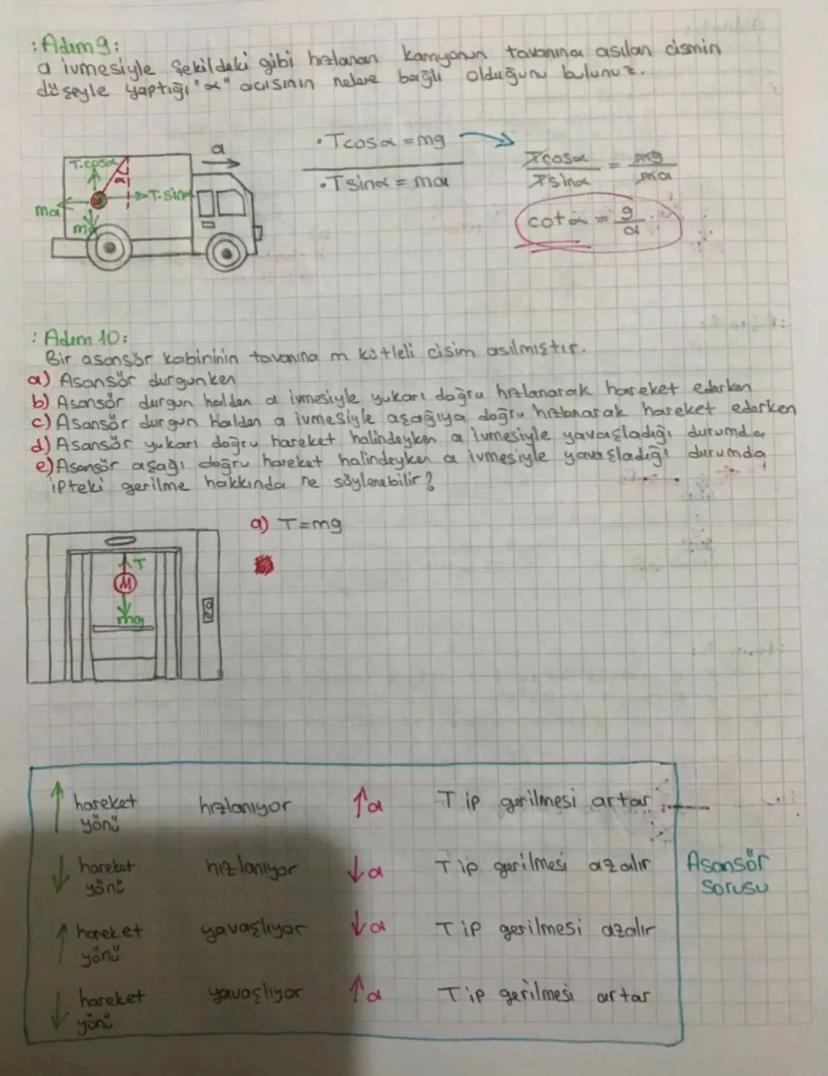 : Adım 9:
a ivmesiyle şekildeki gibi hızlanan kamyonun tavanına asılan cismin
düşeyle yaptığı "α" acısının nelere bağlı olduğunu bulunuz.
a
T.cosα
α
T.sin
ma
mg
• Tcosα = mg
• Tsinα = ma
Tcosα / Tsinα = mg / ma
cotα = g / a
: Adım 10:
Bir asansör kabininin tavanına m kütleli cisim asılmıştır.
a) Asansör durgunken
b) Asansör durgun halden a ivmesiyle yukarı doğru hızlanarak hareket ederken
c) Asansör durgun halden a ivmesiyle aşağıya doğru hızlanarak hareket ederken
d) Asansör yukarı doğru hareket halindeyken a ivmesiyle yavaşladığı durumda
e) Asansör aşağı doğru hareket halindeyken a ivmesiyle yavaşladığı durumda
ipteki gerilme hakkında ne söylenebilir?
a) T=mg
T
M
mg
↑ hareket yönü hızlanıyor ↑a T ip gerilmesi artar
↓ hareket yönü hızlanıyor ↓a T ip gerilmesi azalır
↑ hareket yönü yavaşlıyor ↓a T ip gerilmesi azalır
↓ hareket yönü yavaşlıyor ↑a T ip gerilmesi artar
Asansör
sorusu